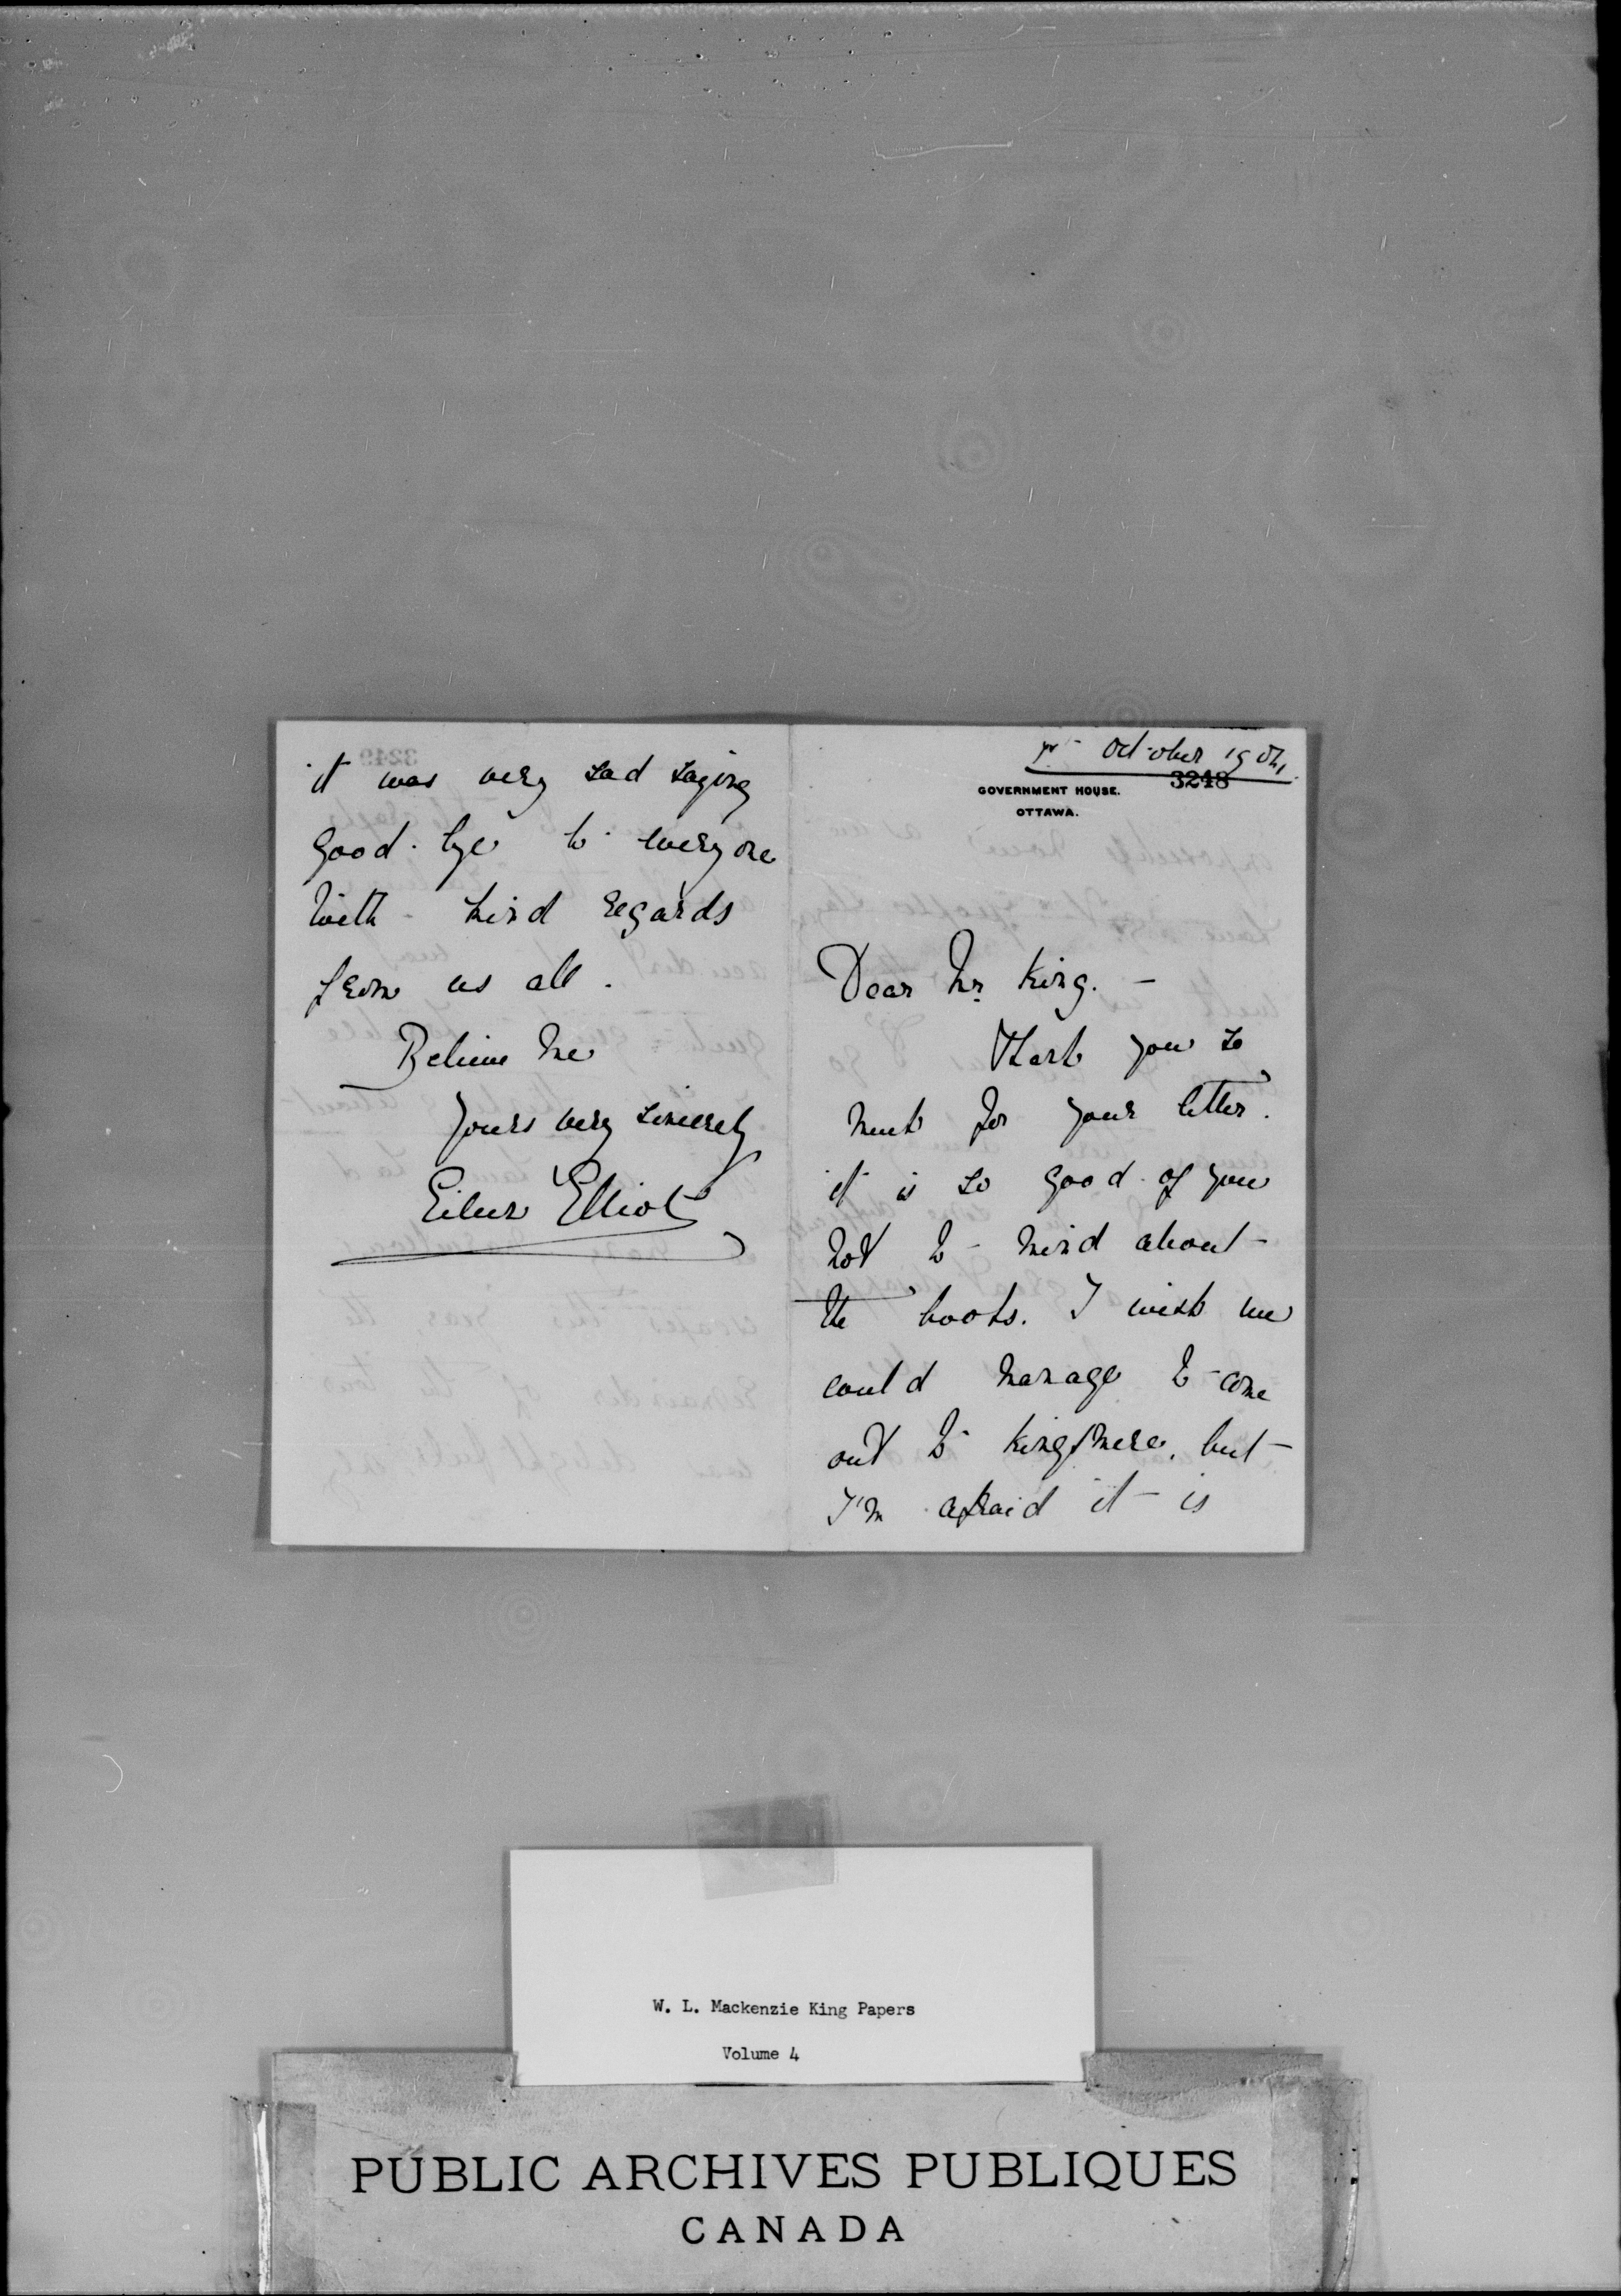 it was very sad saying
good-bye to everyone
With kind regards
from us all.
Believe me
Yours very sincerely
Eileen Elliot
October 1904
3248
GOVERNMENT HOUSE.
OTTAWA.
Dear Mr. King. -
Thank you so
much for your letter.
it is so good of you
not to mind about
the books. I wish we
could manage to come
out to Kingsmere, but
I'm afraid it is
W. L. Mackenzie King Papers
Volume 4
PUBLIC ARCHIVES PUBLIQUES
CANADA